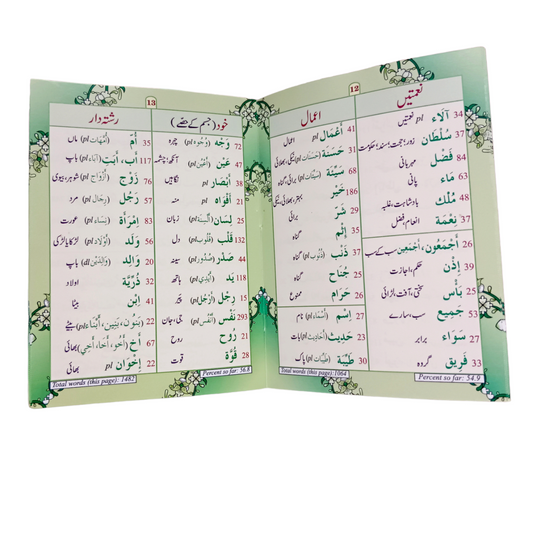 12
نعمتیں
34 آلَاء pl نعمتیں
37 سُلْطَان زور؛حجت؛سند؛حکومت
84 فَضْل مہربانی
63 مَاء پانی
48 مُلْك بادشاہت، غلبہ
37 نِعْمَة انعام، فضل
26 أَجْمَعُون، أَجْمَعِين سب کے سب
39 إِذْن حکم، اجازت
25 بَأْس سختی، آفت، لڑائی
53 جَمِيع سب، سارے
27 سَوَاء برابر
33 فَرِيق گروہ
اعمال
41 أَعْمَال pl اعمال
31 حَسَنَة (حَسَنَات pl) نیکی، بھلائی
58 سَيِّئَة (سَيِّئَات pl) برائی، گناہ
186 خَيْر بہتر، بھلائی، نیکی
29 شَرّ برائی
35 إِثْم گناہ
37 ذَنْب (ذُنُوب pl) گناہ
25 جُنَاح گناہ
26 حَرَام ممنوع
39 اِسْم (أَسْمَاء pl) نام
23 حَدِيث (أَحَادِيث pl) بات
30 طَيِّبَة (طَيِّبَات pl) پاک
Total words (this page): 1064
Percent so far: 54.9
13
خود (جسم کے حصّے)
72 وَجْه (وُجُوه pl) چہرہ
47 عَيْن (أَعْيُن pl) آنکھ؛ چشمہ
38 أَبْصَار pl نگاہیں
21 أَفْوَاه pl منہ
25 لِسَان (أَلْسِنَة pl) زبان
132 قَلْب (قُلُوب pl) دل
44 صَدْر (صُدُور pl) سینہ
118 يَد (أَيْدِي pl) ہاتھ
15 رِجْل (أَرْجُل pl) پَیر
293 نَفْس (أَنْفُس pl) جی، جان
21 رُوح روح
28 قُوَّة قوت
رشتہ دار
35 أُمّ (أُمَّهَات pl) ماں
117 أَب، أَبَت (آبَاء pl) باپ
76 زَوْج (أَزْوَاج pl) شوہر، بیوی
57 رَجُل (رِجَال pl) مرد
83 اِمْرَأَة (نِسَاء pl) عورت
56 وَلَد (أَوْلَاد pl) لڑکا یا لڑکی
20 وَالِد (وَالِدَيْن dl) باپ
32 ذُرِّيَّة اولاد
41 اِبْن بیٹا
22 (بَنُون، بَنِين، أَبْنَاء pl) بیٹے
67 أَخ (أَخُو، أَخَا، أَخِي) بھائی
22 إِخْوَان pl بھائی
Total words (this page): 1482
Percent so far: 56.8